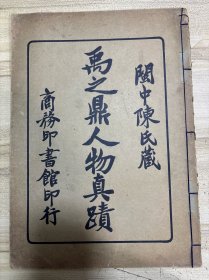 閩中陳氏藏
禹之鼎人物真蹟
商務印書館印行